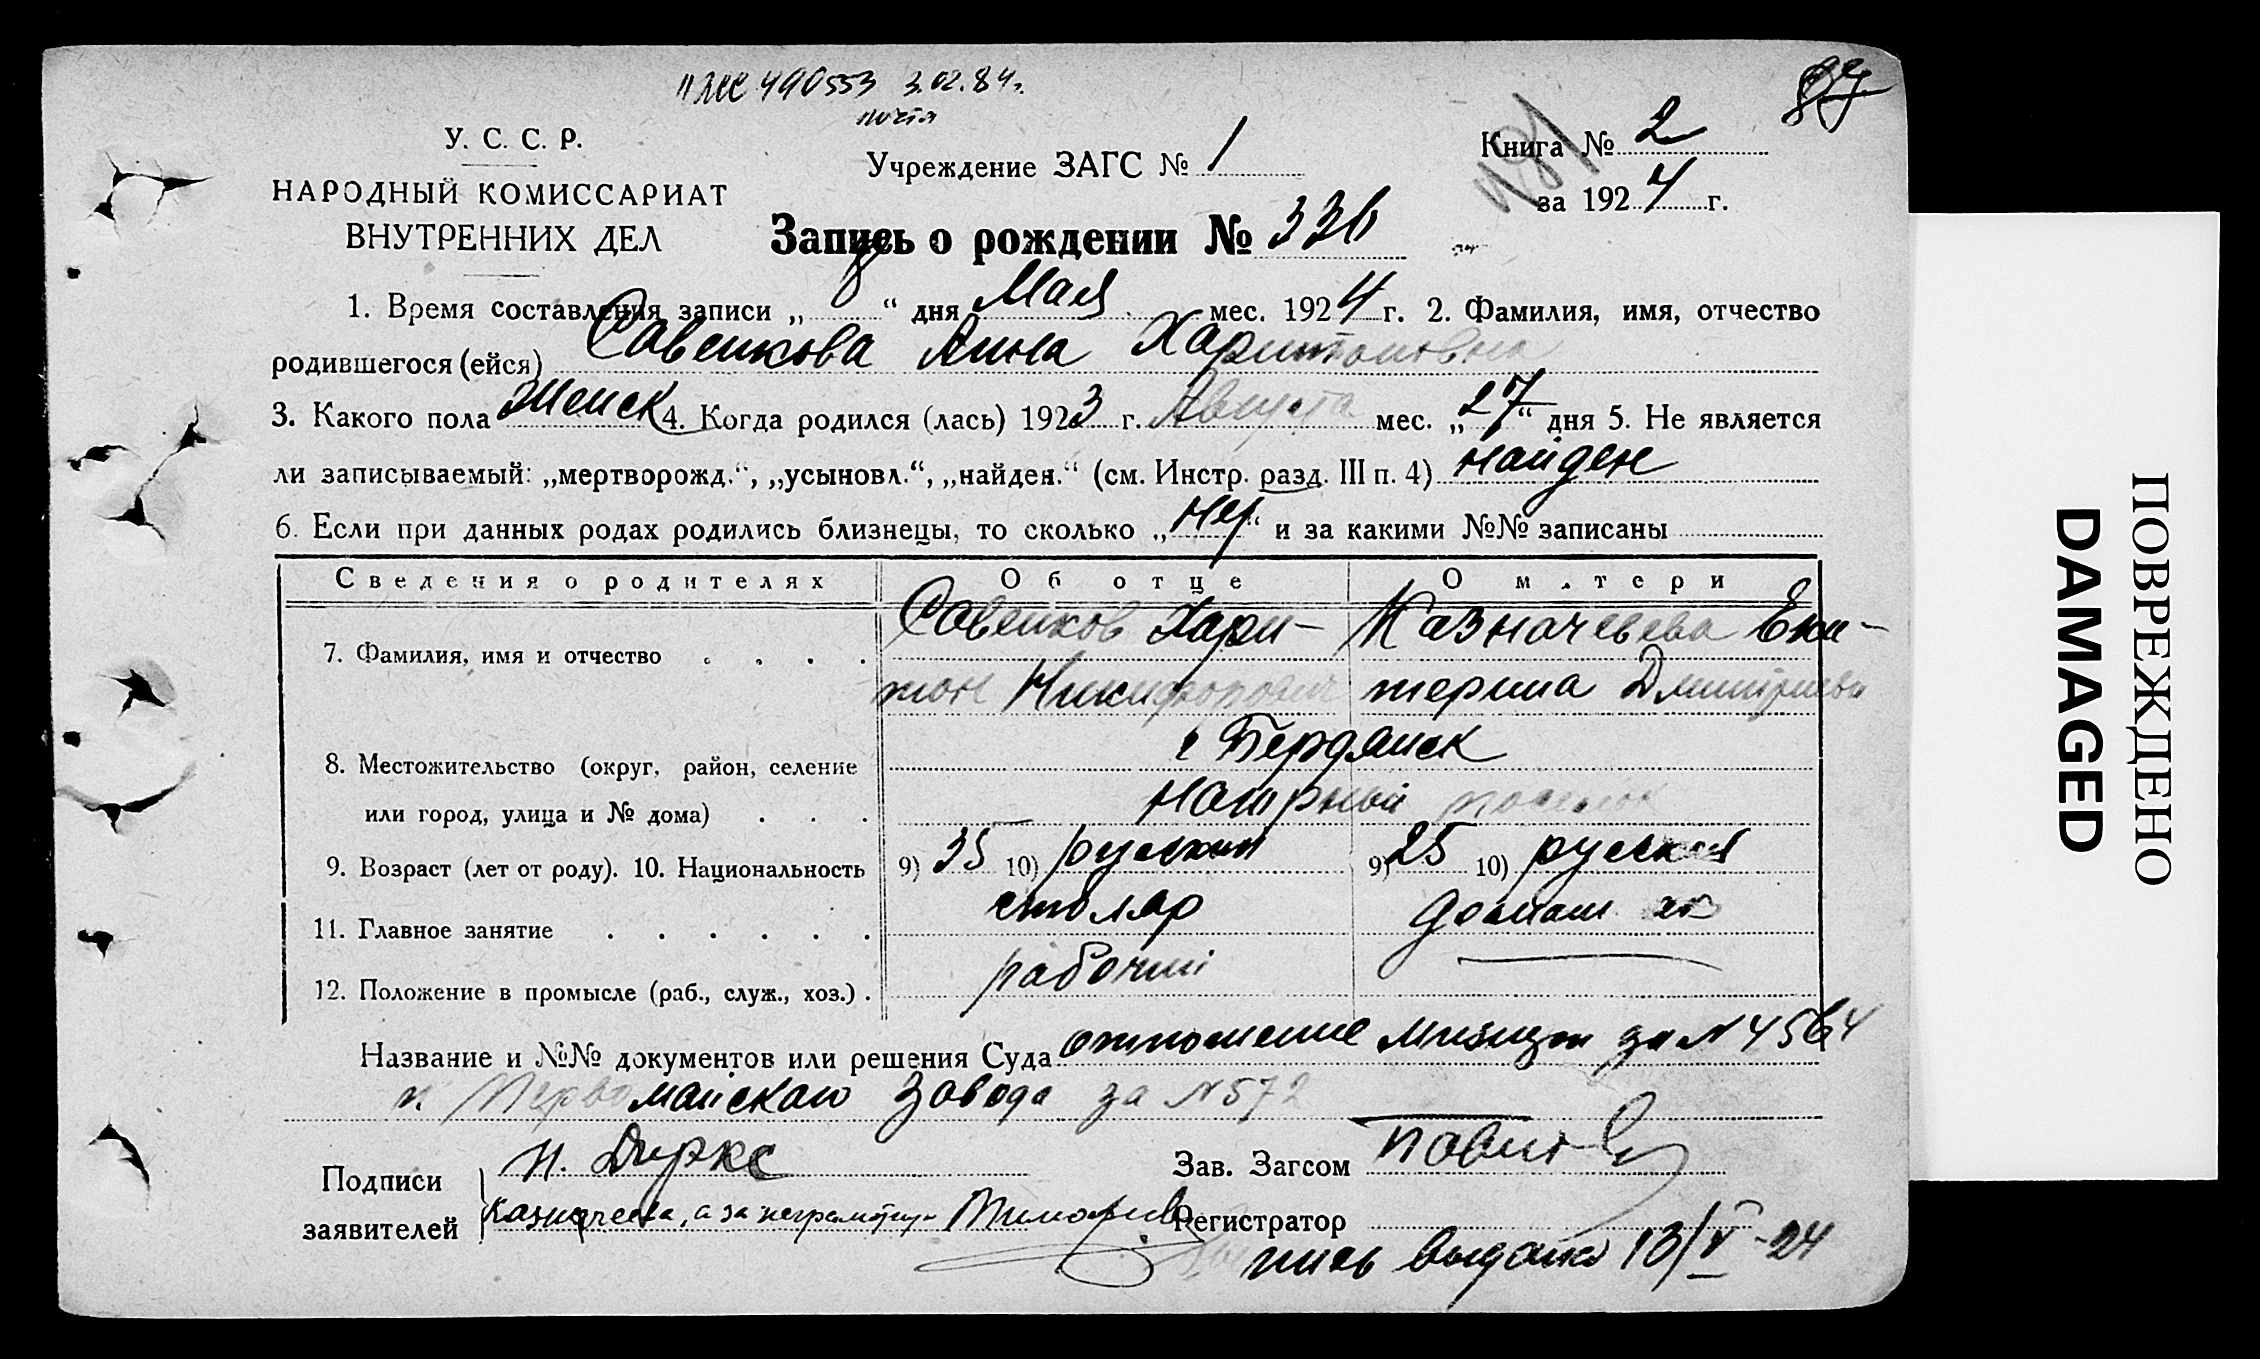 490553 3.02.84г.
почта
У. С. С. Р.
НАРОДНЫЙ КОМИССАРИАТ
ВНУТРЕННИХ ДЕЛ
Учреждение ЗАГС № 1
Книга № 2
за 1924 г.
Запись о рождении № 336
1. Время составления записи „8“ дня Мая мес. 1924 г. 2. Фамилия, имя, отчество
родившегося (ейся) Савенкова Анна Харитоновна
3. Какого пола Женск 4. Когда родился (лась) 1923 г. Августа мес. „27“ дня 5. Не является
ли записываемый: „мертворожд.“, „усыновл.“, „найден.“ (см. Инстр. разд. III п. 4) найден
6. Если при данных родах родились близнецы, то сколько „нет“ и за какими №№ записаны
Сведения о родителях Об отце О матери
7. Фамилия, имя и отчество . . . . Савенков Хари- Казначеева Ека-
тон Никифорович терина Дмитриевн
8. Местожительство (округ, район, селение г Бердянск
или город, улица и № дома) . . . Нагорный поселок
9. Возраст (лет от роду). 10. Национальность 9) 35 10) русский 9) 25 10) русская
11. Главное занятие . . . . . . столяр домаш хоз
12. Положение в промысле (раб., служ., хоз.) . рабочий
Название и №№ документов или решения Суда отношение милиции за N 4564
и Первомайскаго завода за N 572
Подписи
заявителей
Н. Диркс
Казначеева, а за неграмотную Тимофеев
Зав. Загсом
Регистратор
пись выдана 13/V-24
ПОВРЕЖДЕНО
DAMAGED